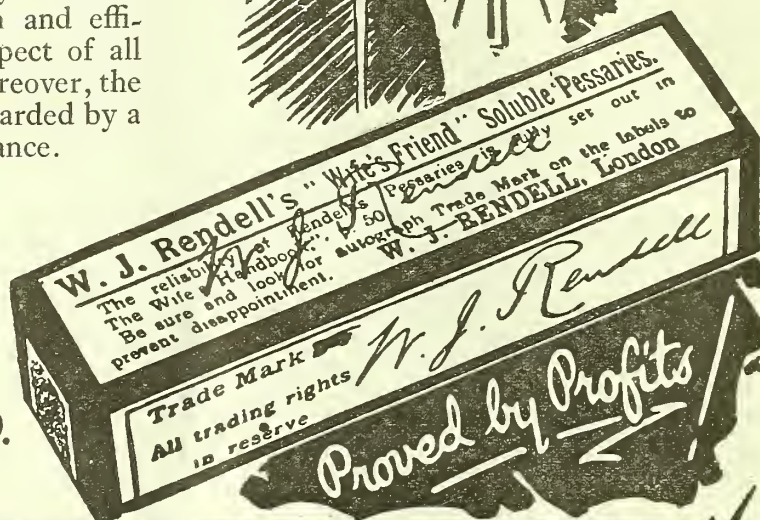 n and effi-
pect of all
reover, the
arded by a
ance.
W. J. Rendell's "Wife's Friend" Soluble Pessaries.
The reliability of Rendell's Pessaries is fully set out in
The Wife Handbook," p. 50
Be sure and look for autograph Trade Mark on the labels to
prevent disappointment. W. J. RENDELL, London
W. J. Rendell
Trade Mark
W. J. Rendell
All trading rights
in reserve
Proved by Profits!